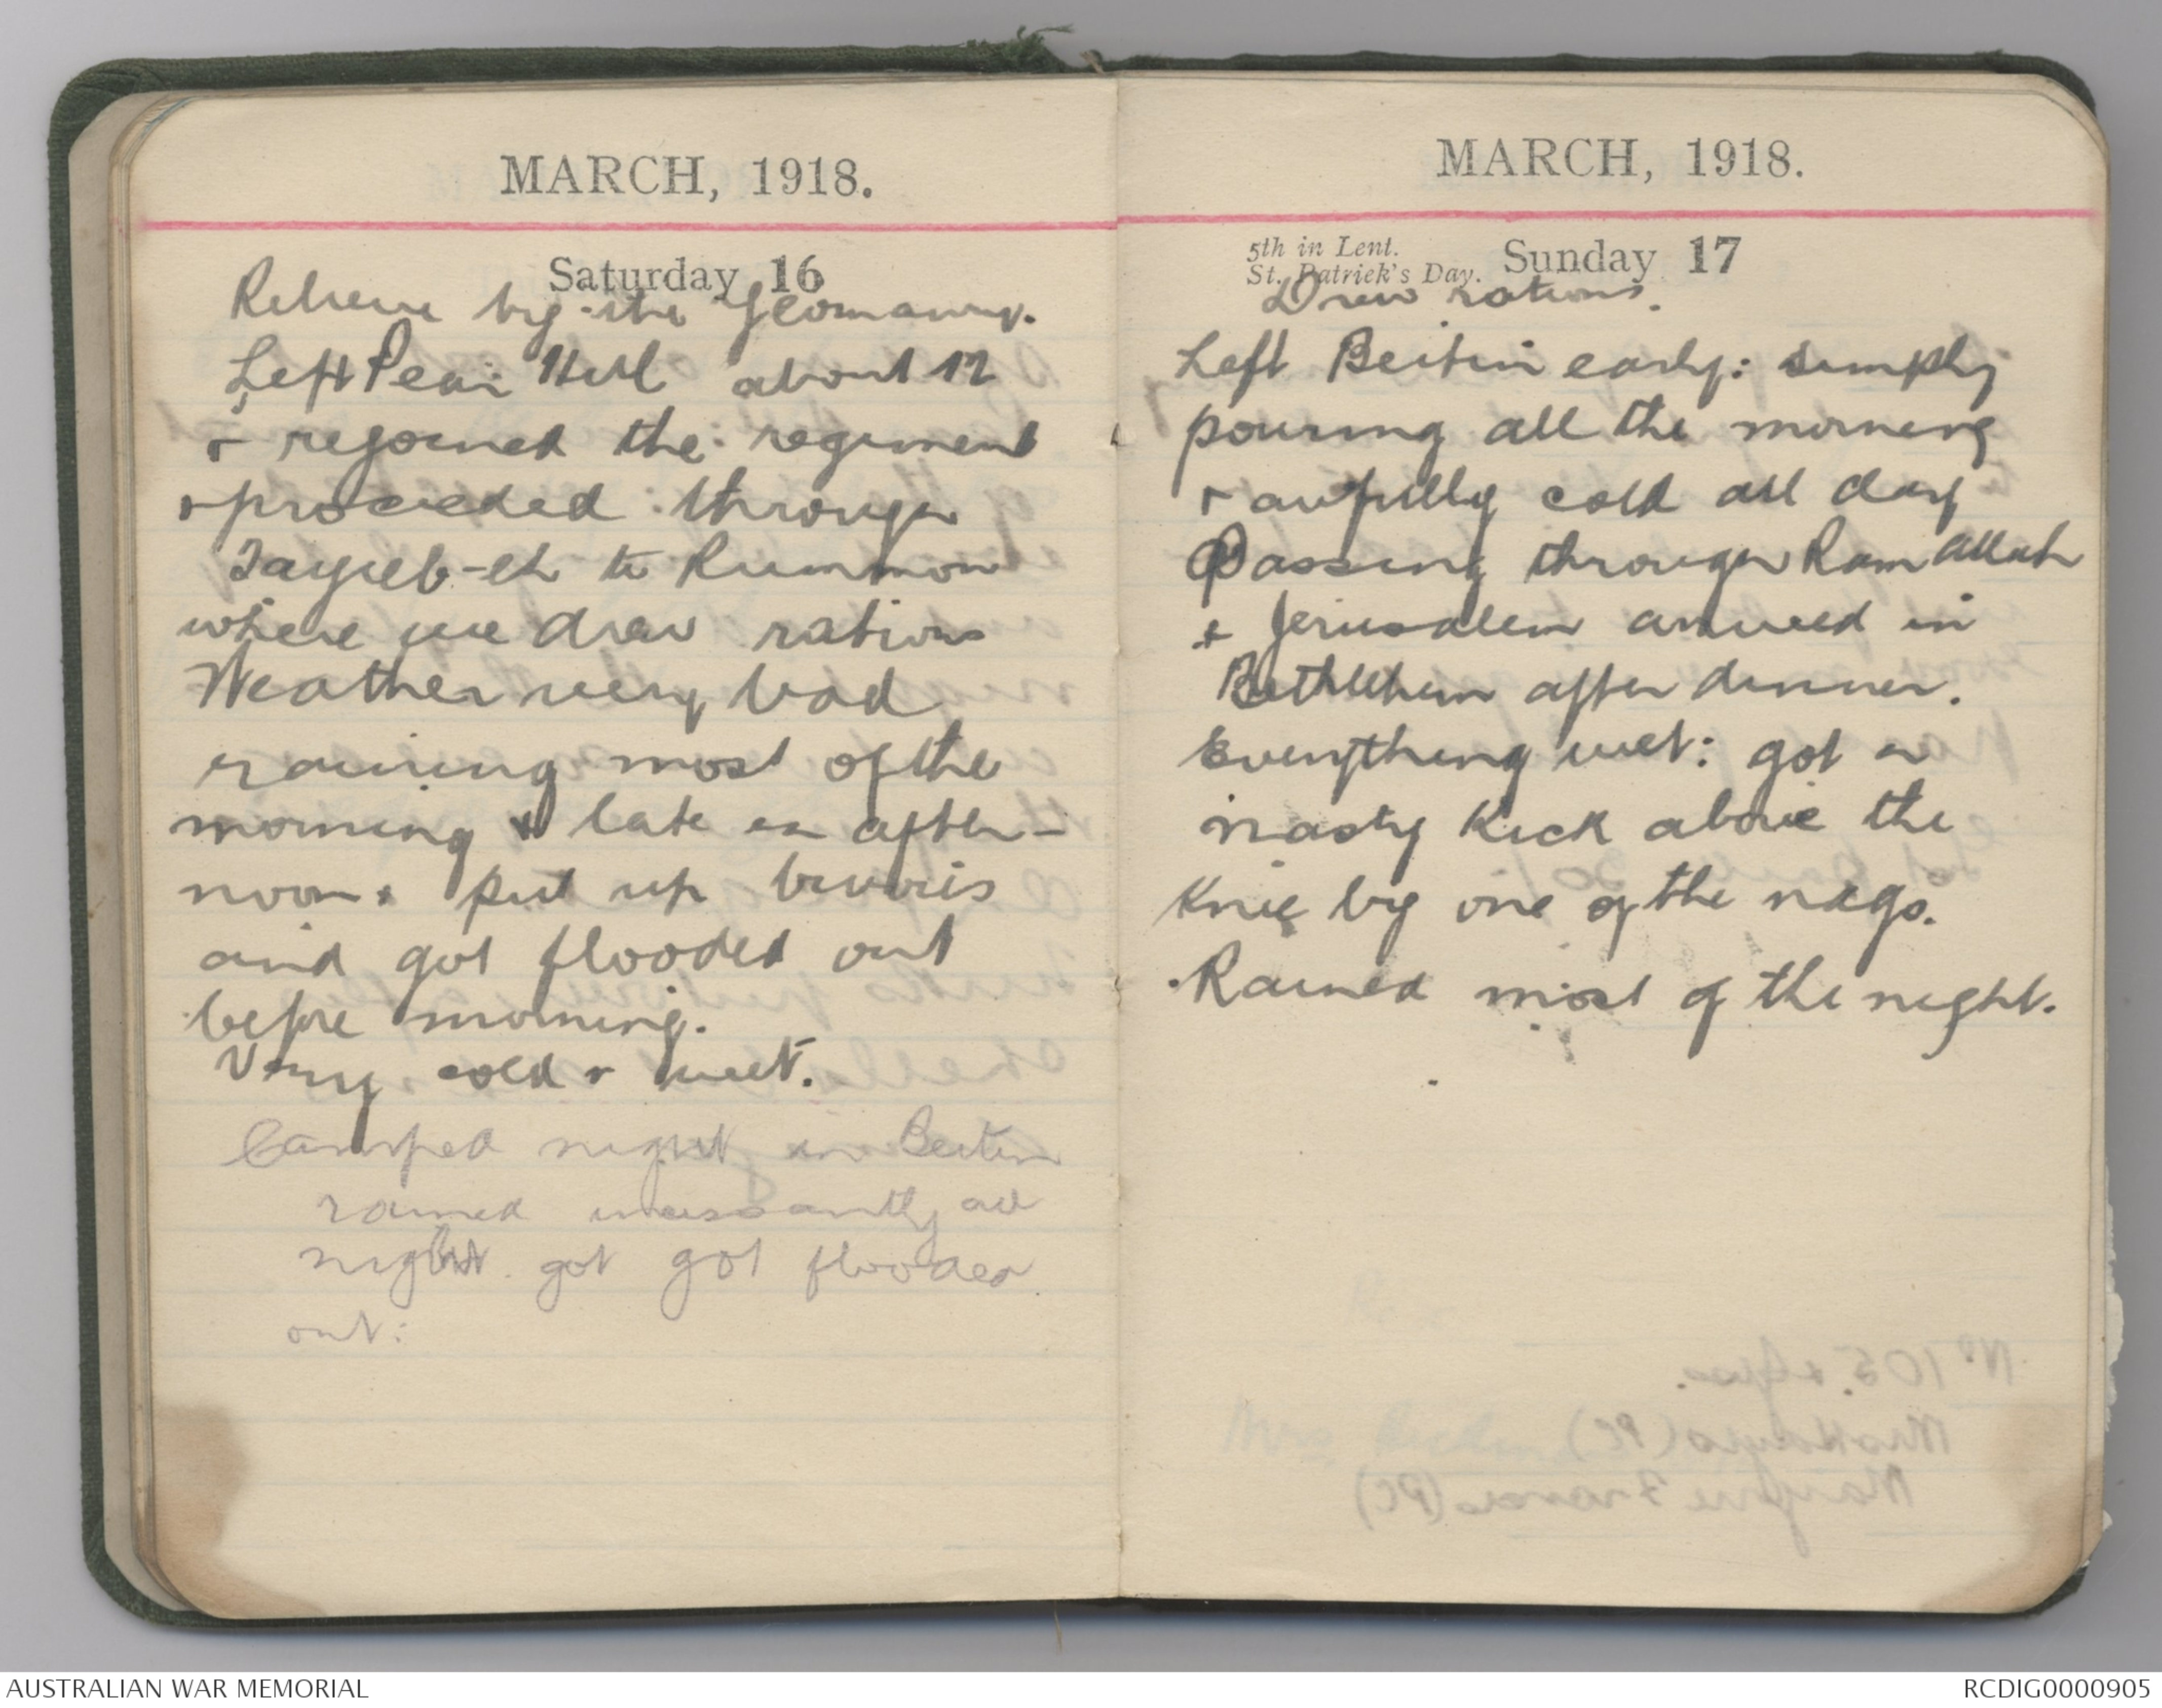 MARCH, 1918.
Saturday 16
Relieve by the Yeomanry.
Left Pear Hill about 12
+ rejoined the regiment
+ proceeded through
Tayieb-eh to Rummon
where we drew rations
Weather very bad
raining most of the
morning & late in after-
noon + put up bivvies
and got flooded out
before morning.
Very cold + wet.
Camped night in Beitin
rained incessantly all
night got got flooded
out:
MARCH, 1918.
5th in Lent.
St. Patrick's Day. Sunday 17
Drew rations.
Left Beitin early: simply
pouring all the morning
+ awfully cold all day
Passing through Ram Allah
+ Jerusalem arrived in
Bethlehem after dinner.
Everything wet: got a
nasty kick above the
knee by one of the nags.
Rained most of the night.
AUSTRALIAN WAR MEMORIAL
RCDIG0000905